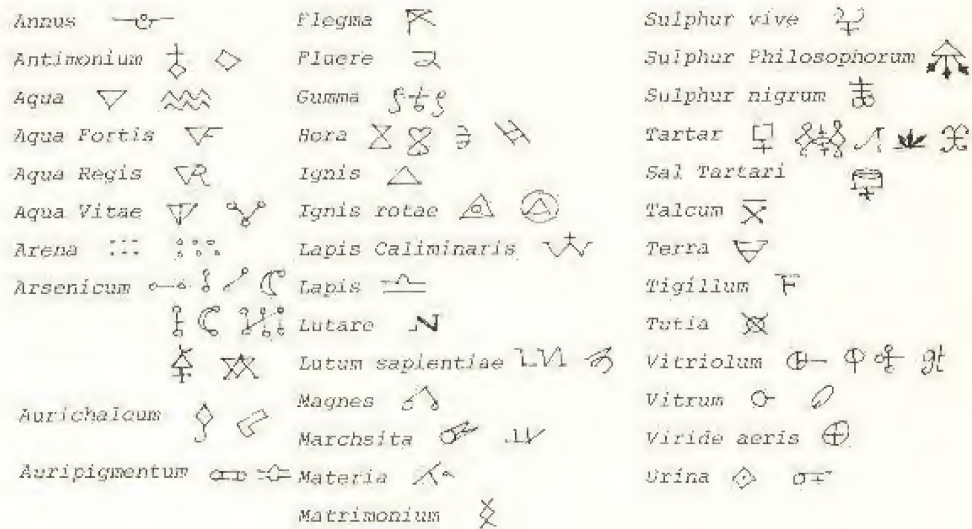 Annus
Antimonium
Aqua
Aqua Fortis
Aqua Regis
Aqua Vitae
Arena
Arsenicum
Aurichalcum
Auripigmentum
Flegma
Fluere
Gumma
Hora
Ignis
Ignis rotae
Lapis Caliminaris
Lapis
Lutare
Lutum sapientiae
Magnes
Marchsita
Materia
Matrimonium
Sulphur vive
Sulphur Philosophorum
Sulphur nigrum
Tartar
Sal Tartari
Talcum
Terra
Tigillum
Tutia
Vitriolum
Vitrum
Viride aeris
Urina